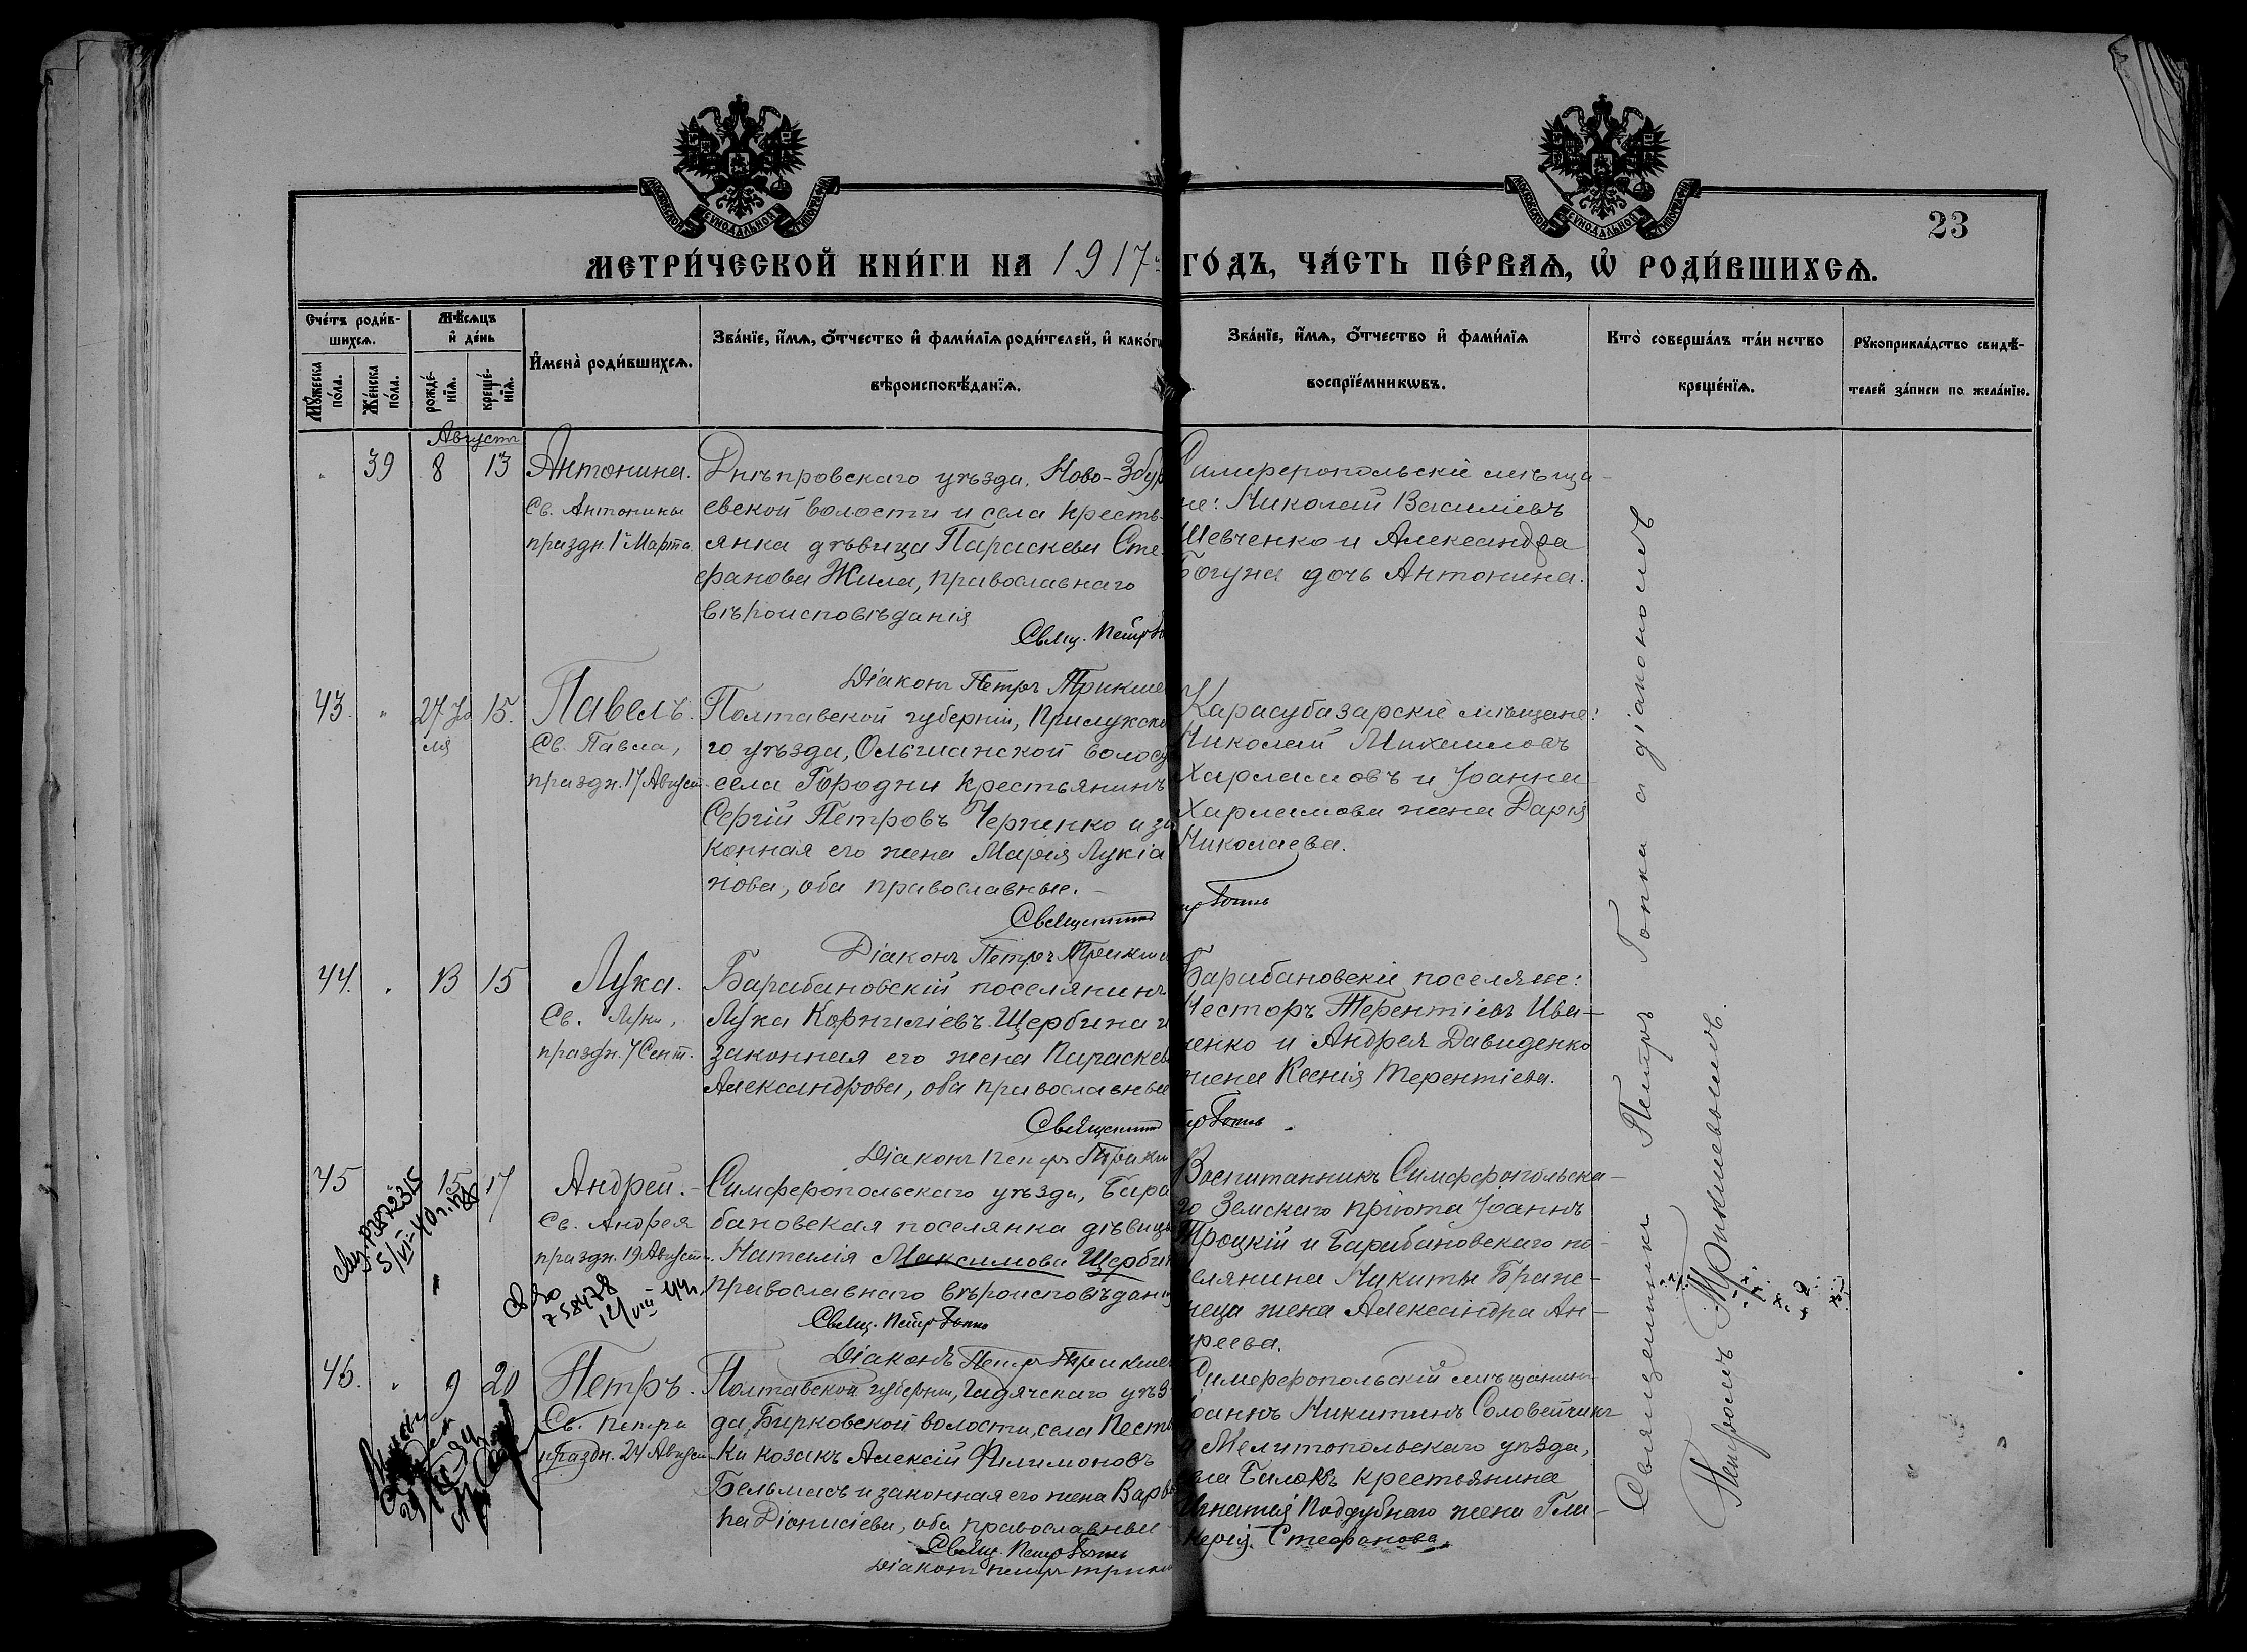 23
МЕТРИ́ЧЕСКОЙ КНИ́ГИ НА 1917 ГО́ДЪ, ЧА́СТЬ ПЕ́РВАѦ, Ѡ҆ РОДИ́ВШИХСѦ.
Сче́тъ роди́в-
шихсѧ.
Мꙋ́жеска по́ла.
Же́нска по́ла.
Мѣ́сѧцъ
и҆ де́нь
рожде́-
нїѧ.
креще́-
нїѧ.
И҆мена̀ роди́вшихсѧ.
Зва́нїе, и҆́мѧ, ѻ҆́тчество и҆ фами́лїѧ роди́телей, и҆ како́гѡ
вѣроисповѣ́данїѧ.
Зва́нїе, и҆́мѧ, ѻ҆́тчество и҆ фами́лїѧ
воспрїе́мникѡвъ.
Кто̀ соверша́лъ та́инство
креще́нїѧ.
Рꙋкоприкла́дство свидѣ́-
телей за́писи по жела́нїю.
Августъ
39 8 13 Антонина.
Св. Антонины
праздн. 1 Марта.
Днѣпровскаго уѣзда, Ново-Збур
евской волости и села кресть-
янка дѣвица Параскева Сте-
фанова Жила, православнаго
вѣроисповѣданія
Свящ. Петръ
Діаконъ Петръ
Симферопольскіе мѣща-
не: Николай Василіевъ
Шевченко и Александра
Богуна дочь Антонина.
43. 27 Ію 15. Павелъ.
ля
Св. Павла,
праздн. 17 Август.
Полтавской губерніи, Прилукска
го уѣзда, Ольшанской волос
села Городни крестьянинъ
Сергій Петровъ Черненко и за
конная его жена Марія Лукіа
нова, оба православные.
Священник
Діаконъ Петръ
Карасубазарскіе мѣщане:
Николай Михаиловъ
Харламовъ и Іоанна
Харламова жена Дарія
Николаева.
44. 13 15 Лука.
Св. Луки,
праздн. 7 Сент.
Барабановскій поселянинъ
Лука Корниліевъ Щербина и
законная его жена Параскев
Александрова, оба православные
Священник
Діаконъ Петръ
Барабановскіе поселяне:
Несторъ Терентіевъ Ива-
ненко и Андрея Давиденко
жена Ксенія Терентіева.
45 15 17 Андрей.
Св. Андрея
праздн. 19 Августа.
Симферопольскаго уѣзда, Бара
бановская поселянка дѣвица
Наталія Максимова Щербин
православнаго вѣроисповѣдані
Свящ. Петръ
Діаконъ Петръ
Воспитанникъ Симферопольска-
го Земскаго пріюта Іоаннъ
Троцкій и Барабановскаго по
селянина Никиты Браже-
неца жена Александра Ан-
дреева.
5/VI-40 г.
758478
46. 9 20 Петръ.
Св. Петра
праздн. 24 Август.
Полтавской губерніи, Гадячскаго уѣз
да, Бирковской волости, села Пест
ки козакъ Алексій Филимоновъ
Бельмасъ и законная его жена Варва
ра Діонисіева, оба православные
Свящ. Петръ
Діаконъ Петръ
Симферопольскій мѣщанин
Іоаннъ Никитинъ Соловейчикъ
и Мелитопольскаго уѣзда,
села крестьянина
Игнатія Поддубнаго жена Гли-
керія Стефанова.
Священникъ Петръ а діакономъ
Петромъ